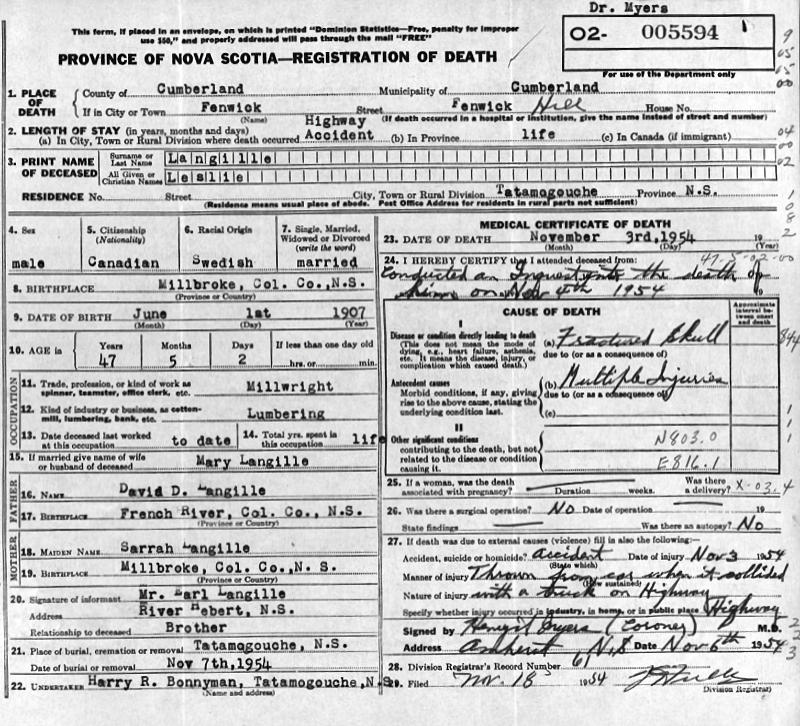 Dr. Myers
This form, if placed in an envelope, on which is printed "Dominion Statistics—Free, penalty for improper
use $50," and properly addressed will pass through the mail "FREE"
O2- 005594
For use of the Department only
PROVINCE OF NOVA SCOTIA—REGISTRATION OF DEATH
1. PLACE OF DEATH County of Cumberland Municipality of Cumberland
If in City or Town Fenwick Street Fenwick Hill House No.
(Name) (If death occurred in a hospital or institution, give the name instead of street and number)
2. LENGTH OF STAY (in years, months and days) Highway
(a) In City, Town or Rural Division where death occurred Accident (b) In Province life (c) In Canada (if immigrant)
3. PRINT NAME OF DECEASED Surname or Last Name Langille
All Given or Christian Names Leslie
RESIDENCE No. Street City, Town or Rural Division Tatamogouche Province N.S.
(Residence means usual place of abode. Post Office Address for residents in rural parts not sufficient)
4. Sex male
5. Citizenship (Nationality) Canadian
6. Racial Origin Swedish
7. Single, Married, Widowed or Divorced (write the word) married
8. BIRTHPLACE Millbroke, Col. Co.,N.S.
(Province or Country)
9. DATE OF BIRTH June 1st 1907
(Month) (Day) (Year)
10. AGE in Years 47 Months 5 Days 2 If less than one day old hrs. or min.
OCCUPATION
11. Trade, profession, or kind of work as spinner, teamster, office clerk, etc. Millwright
12. Kind of industry or business, as cotton-mill, lumbering, bank, etc. Lumbering
13. Date deceased last worked at this occupation to date 14. Total yrs. spent in this occupation life
15. If married give name of wife or husband of deceased Mary Langille
FATHER
16. NAME David D. Langille
17. BIRTHPLACE French River, Col. Co., N.S.
(Province or Country)
MOTHER
18. MAIDEN NAME Sarrah Langille
19. BIRTHPLACE Millbroke, Col. Co.,N. S.
(Province or Country)
20. Signature of informant Mr. Earl Langille
Address River Hebert, N.S.
Relationship to deceased Brother
21. Place of burial, cremation or removal Tatamagouche, N.S.
Date of burial or removal Nov 7th,1954
22. UNDERTAKER Harry R. Bonnyman, Tatamagouche,N.S
(Name and address)
MEDICAL CERTIFICATE OF DEATH
23. DATE OF DEATH November 3rd,1954 19
(Month) (Day) (Year)
24. I HEREBY CERTIFY that I attended deceased from:
Conducted an Inquest into the death of
him on Nov 4th 1954 19
CAUSE OF DEATH
Approximate interval between onset and death
I
Disease or condition directly leading to death (a) Fractured Skull
(This does not mean the mode of dying, e.g., heart failure, asthenia, etc. It means the disease, injury, or complication which caused death.) due to (or as a consequence of)
Antecedent causes (b) Multiple Injuries
Morbid conditions, if any, giving rise to the above cause, stating the underlying condition last. due to (or as a consequence of)
(c)
II
Other significant conditions N803.0
contributing to the death, but not related to the disease or condition causing it. E816.1
25. If a woman, was the death associated with pregnancy? Duration weeks. Was there a delivery? X-03.4
26. Was there a surgical operation? No Date of operation 19
State findings Was there an autopsy? No
27. If death was due to external causes (violence) fill in also the following:—
Accident, suicide or homicide? accident Date of injury Nov 3 1954
(State which)
Manner of injury Thrown from car when it collided
(How sustained)
Nature of injury with a truck on Highway
Specify whether injury occurred in industry, in home, or in public place Highway
Signed by Myers (Coroner) M.D.
Address Amherst N.S Date Nov 6th 1954
28. Division Registrar's Record Number 61
29. Filed Nov. 18 1954
Division Registrar